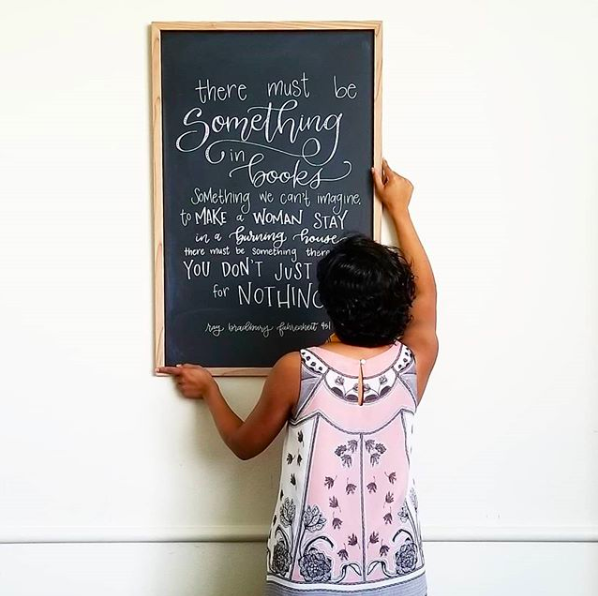 there must be
Something
in
books
Something we can't imagine,
to MAKE a WOMAN STAY
in a burning house
there must be something there
YOU DON'T JUST
for NOTHING
ray bradbury fahrenheit 451